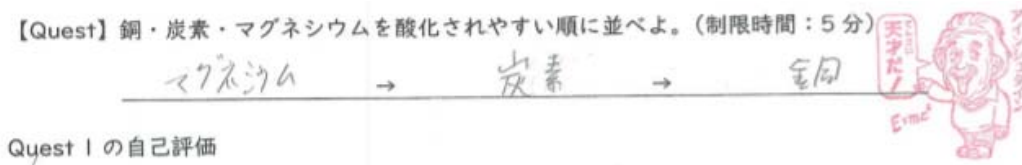 【Quest】銅・炭素・マグネシウムを酸化されやすい順に並べよ。(制限時間：5分)
マグネシウム → 炭素 → 銅
天才だ！
アインシュタイン
E=mc²
Quest 1 の自己評価